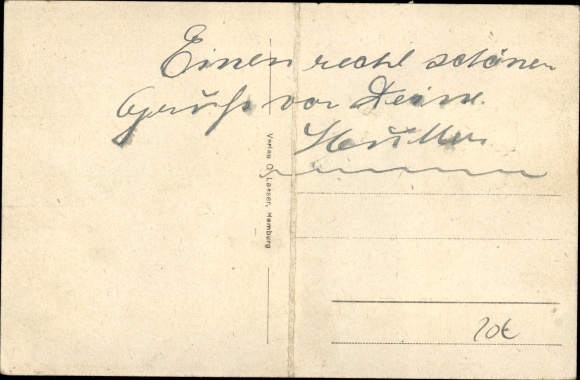 Einen recht schönen
Gruß von Deine
Mutter
Verlag O. Lasser, Hamburg
20€